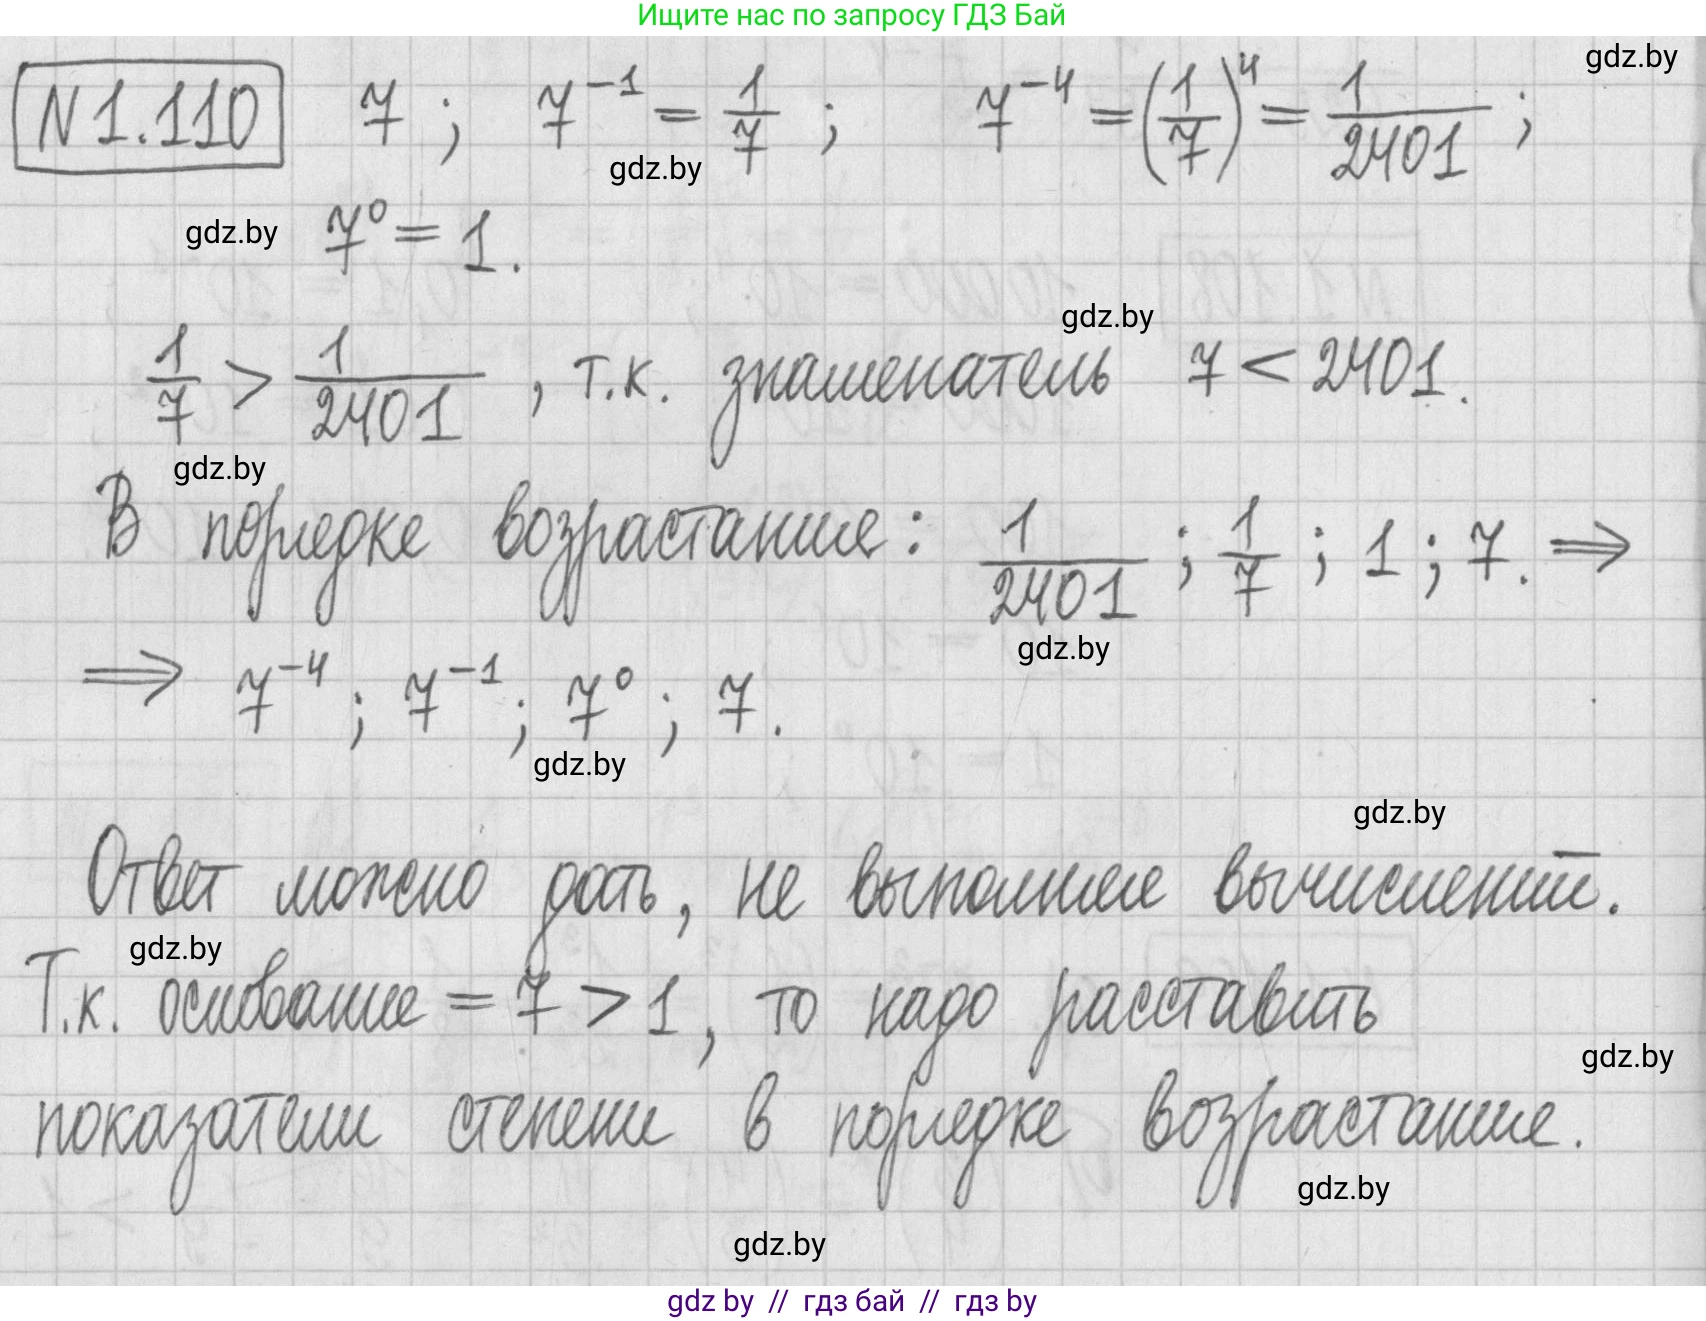 Ищите нас по запросу ГДЗ Бай
gdz.by
N 1.110 7 ; 7⁻¹ = 1/7 ; 7⁻⁴ = (1/7)⁴ = 1/2401 ;
gdz.by
gdz.by 7⁰ = 1.
gdz.by
1/7 > 1/2401 , т.к. знаменатель 7 < 2401.
gdz.by
В порядке возрастания: 1/2401 ; 1/7 ; 1 ; 7. ⇒
gdz.by
⇒ 7⁻⁴ ; 7⁻¹ ; 7⁰ ; 7.
gdz.by
gdz.by
Ответ можно дать, не выполняя вычислений.
gdz.by
Т.к. основание = 7 > 1, то надо расставить
gdz.by
показатели степени в порядке возрастания.
gdz.by
gdz.by
gdz by // гдз бай // гдз by